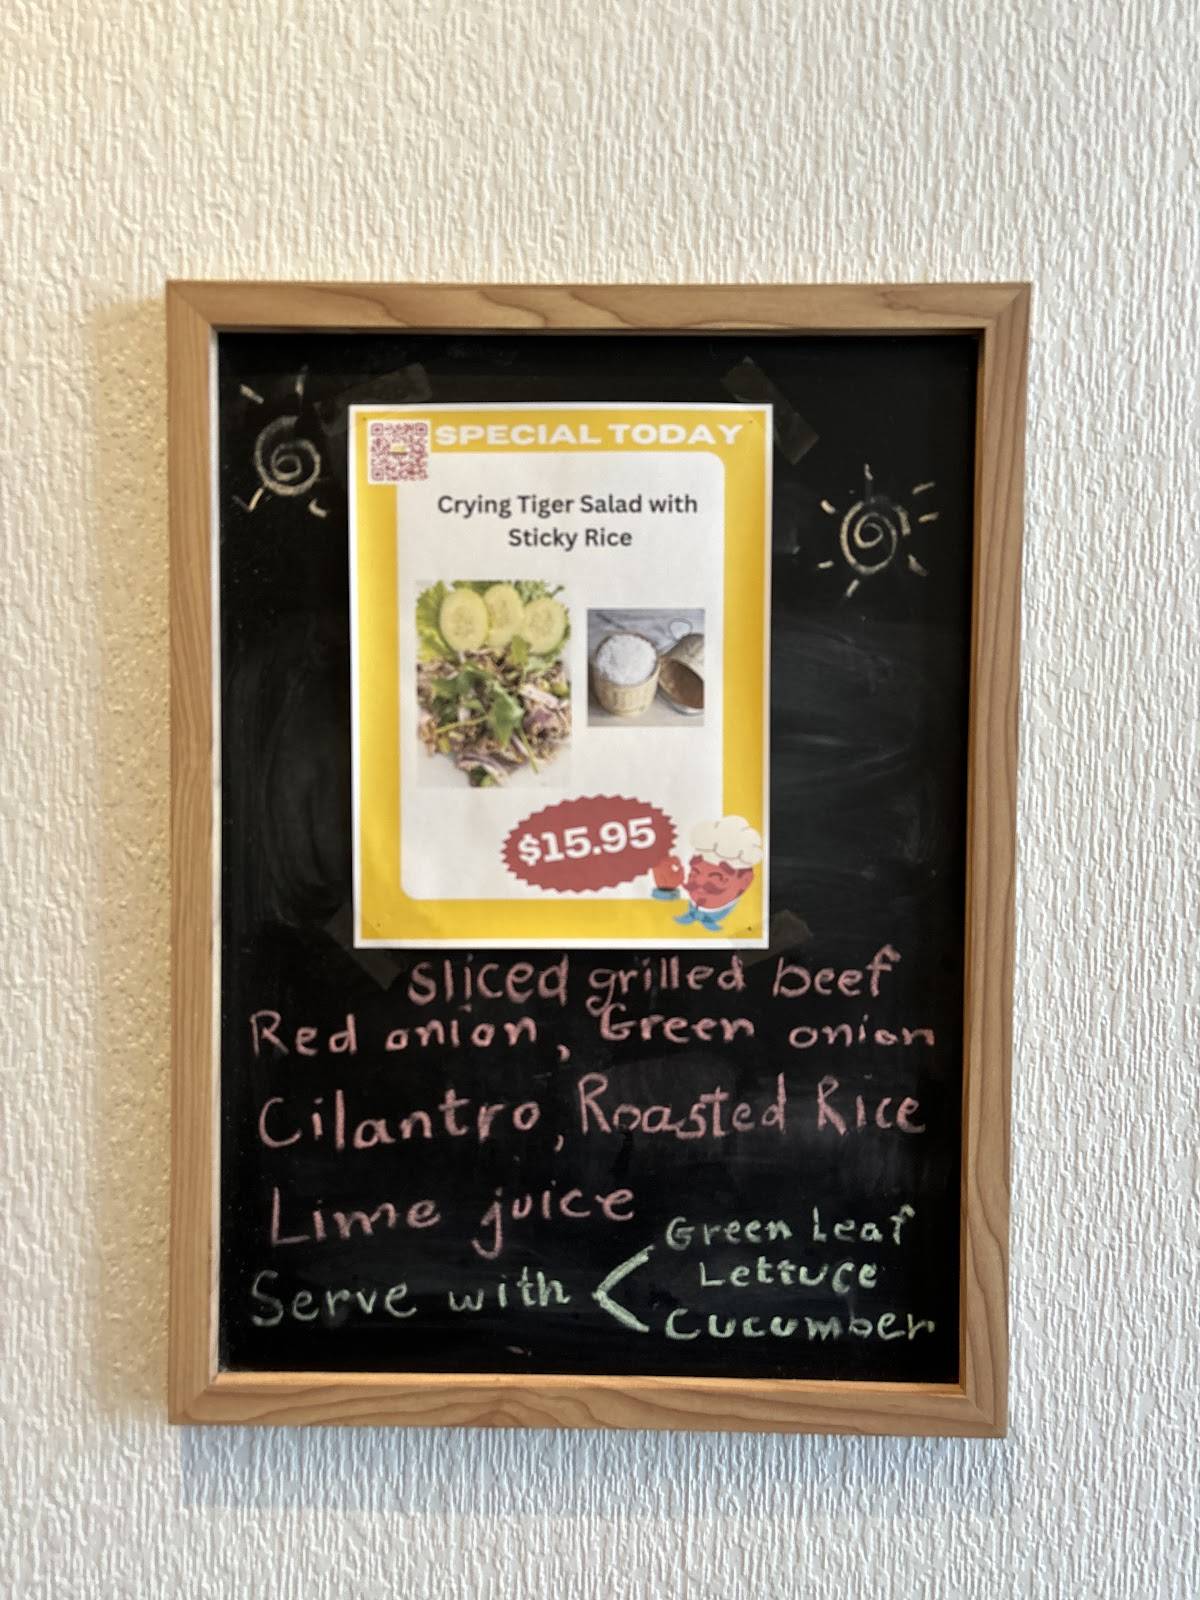 SPECIAL TODAY
Crying Tiger Salad with
Sticky Rice
$15.95
Sliced grilled beef
Red onion, Green onion
Cilantro, Roasted Rice
Lime juice
Serve with < Green Leaf
Lettuce
Cucumber